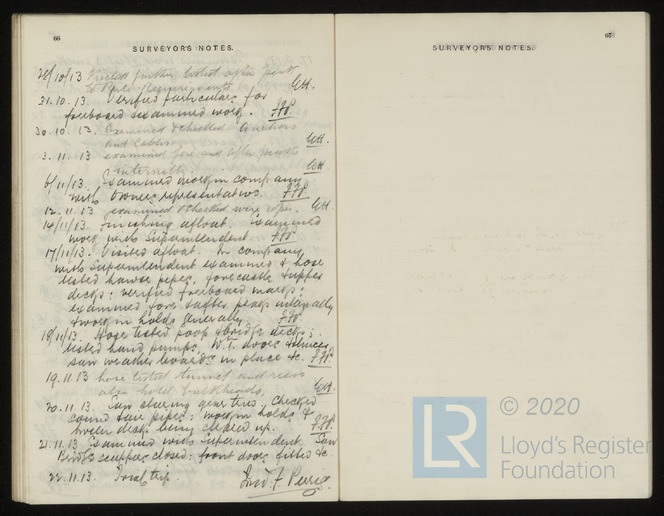 66
SURVEYOR'S NOTES.
28/10/13 further tested after peak
to
31.10.13. Verified particulars for
freeboard & examined work.
30.10.13. Examined & checked
and
3.11.13 examined fore and after peaks
internally.
6/11/13. Examined work in company
with Owners representatives.
12.11.13 examined & checked wire ropes.
14/11/13. finishing afloat. Examined
work with Superintendent
17/11/13. Visited afloat. In company
with Superintendent examined & hose
tested hawse pipes, forecastle & upper
decks: verified freeboard marks:
examined fore & after peaks internally
& work in holds generally
19/11/13. Hose tested poop & bridge decks;
tested hand pumps. W.T. doors & sluices
saw weather boards in place &c.
19.11.13 hose tested tunnel and recess
also hold bulkheads.
20.11.13. Saw steering gear tried. Checked
sounding pipes: work in holds &
tween decks being cleaned up.
21.11.13. Examined with Superintendent. Saw
Bridge scuppers closed: front doors fitted &c
22.11.13. Trial trip.
67
SURVEYOR'S NOTES.
LR
© 2020
Lloyd's Register
Foundation